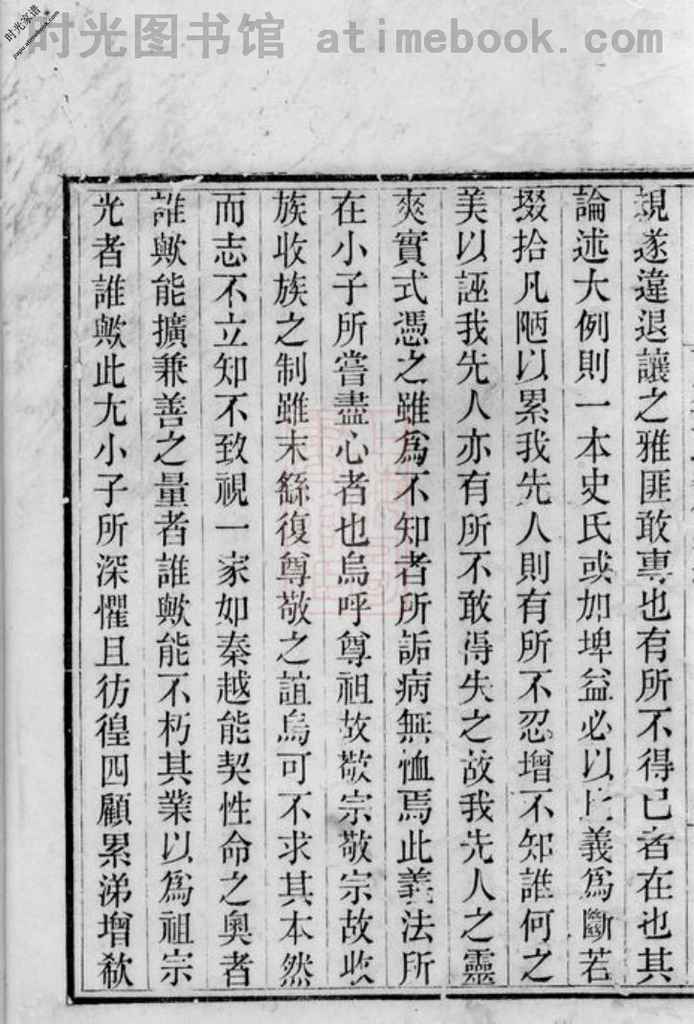 时光图书馆 atimebook.com
时光家谱
親遂違退讓之雅匪敢專也有所不得已者在也其
論述大例則一本史氏或加埤益必以比義爲斷若
掇拾凡陋以累我先人則有所不忍增不知誰何之
美以誣我先人亦有所不敢得失之故我先人之靈
爽實式憑之雖爲不知者所詬病無恤焉此義法所
在小子所嘗盡心者也烏呼尊祖故敬宗敬宗故收
族收族之制雖末繇復尊敬之誼烏可不求其本然
而志不立知不致視一家如秦越能契性命之奧者
誰歟能擴兼善之量者誰歟能不朽其業以爲祖宗
光者誰歟此尢小子所深懼且彷徨四顧累涕增欷